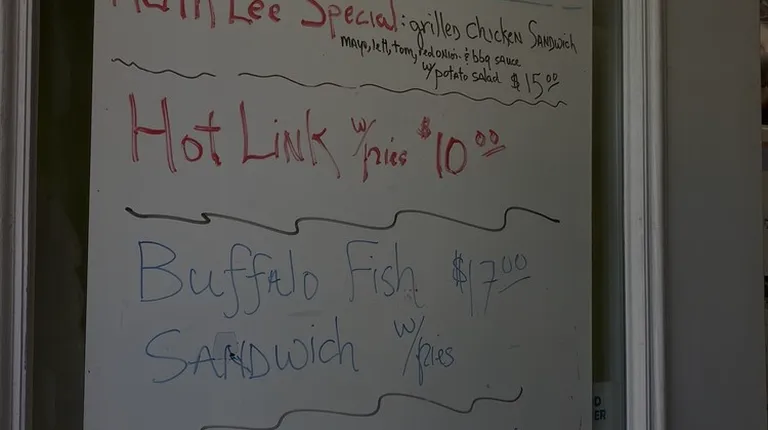 Lee Special: grilled Chicken Sandwich
mayo, lett, tom, red onion & bbq sauce
w/potato salad $15.00
Hot Link w/ $10.00
Buffalo Fish $17.00
Sandwich w/